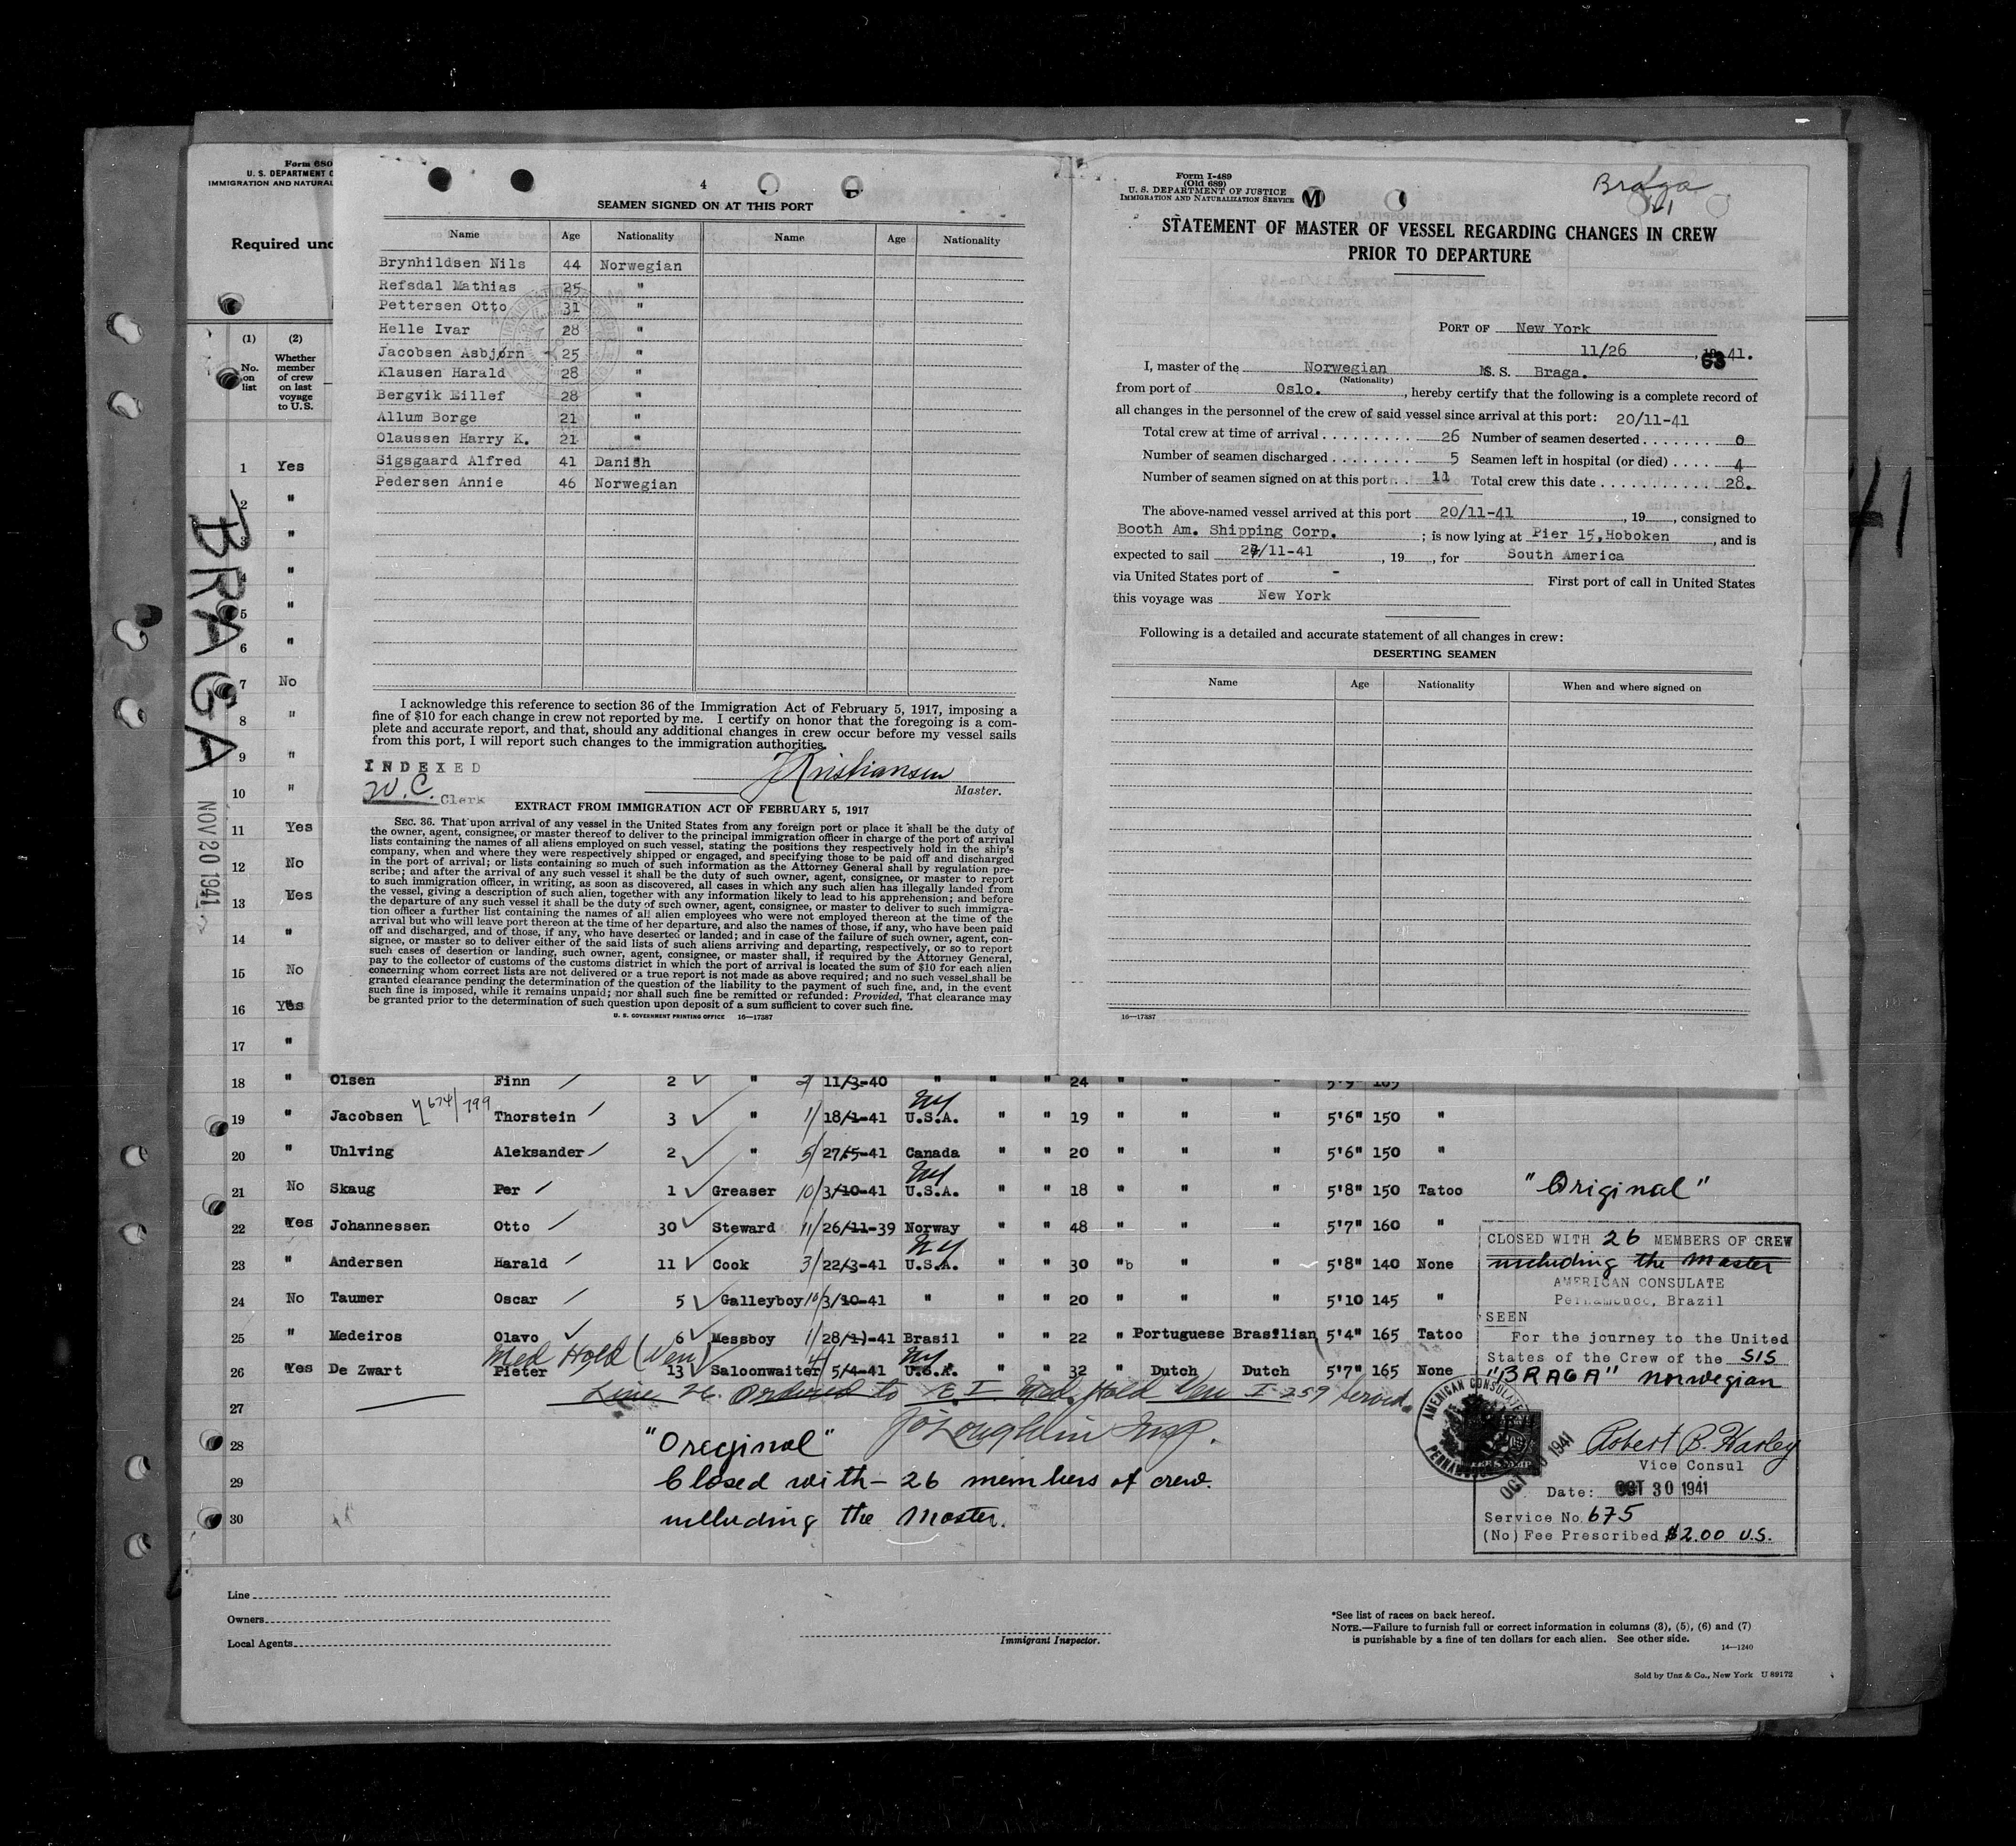 Form 680
U. S. DEPARTMENT O
IMMIGRATION AND NATURAL
Required und
(1) (2)
No. on list
Whether member of crew on last voyage to U.S.
1 Yes
2 "
3 "
"
5 "
6 "
7 No
8 "
9 "
10 "
11 Yes
12 No
13 Yes
14 "
15 No
16 Yes
17 "
BRAGA
NOV 20 1941
4
SEAMEN SIGNED ON AT THIS PORT
Name Age Nationality Name Age Nationality
Brynhildsen Nils 44 Norwegian
Refsdal Mathias 25 "
Pettersen Otto 31 "
Helle Ivar 28 "
Jacobsen Asbjørn 25 "
Klausen Harald 28 "
Bergvik Eillef 28 "
Allum Borge 21 "
Olaussen Harry K. 21 "
Sigsgaard Alfred 41 Danish
Pedersen Annie 46 Norwegian
I acknowledge this reference to section 36 of the Immigration Act of February 5, 1917, imposing a
fine of $10 for each change in crew not reported by me. I certify on honor that the foregoing is a com-
plete and accurate report, and that, should any additional changes in crew occur before my vessel sails
from this port, I will report such changes to the immigration authorities.
INDEXED
W. C. Clerk
Kristiansen
Master.
EXTRACT FROM IMMIGRATION ACT OF FEBRUARY 5, 1917
SEC. 36. That upon arrival of any vessel in the United States from any foreign port or place it shall be the duty of
the owner, agent, consignee, or master thereof to deliver to the principal immigration officer in charge of the port of arrival
lists containing the names of all aliens employed on such vessel, stating the positions they respectively hold in the ship's
company, when and where they were respectively shipped or engaged, and specifying those to be paid off and discharged
in the port of arrival; or lists containing so much of such information as the Attorney General shall by regulation pre-
scribe; and after the arrival of any such vessel it shall be the duty of such owner, agent, consignee, or master to report
to such immigration officer, in writing, as soon as discovered, all cases in which any such alien has illegally landed from
the vessel, giving a description of such alien, together with any information likely to lead to his apprehension; and before
the departure of any such vessel it shall be the duty of such owner, agent, consignee, or master to deliver to such immigra-
tion officer a further list containing the names of all alien employees who were not employed thereon at the time of the
arrival but who will leave port thereon at the time of her departure, and also the names of those, if any, who have been paid
off and discharged, and of those, if any, who have deserted or landed; and in case of the failure of such owner, agent, con-
signee, or master so to deliver either of the said lists of such aliens arriving and departing, respectively, or so to report
such cases of desertion or landing, such owner, agent, consignee, or master shall, if required by the Attorney General,
pay to the collector of customs of the customs district in which the port of arrival is located the sum of $10 for each alien
concerning whom correct lists are not delivered or a true report is not made as above required; and no such vessel shall be
granted clearance pending the determination of the question of the liability to the payment of such fine, and, in the event
such fine is imposed, while it remains unpaid; nor shall such fine be remitted or refunded: Provided, That clearance may
be granted prior to the determination of such question upon deposit of a sum sufficient to cover such fine.
U. S. GOVERNMENT PRINTING OFFICE 16—17387
Form I-489
(Old 689)
U. S. DEPARTMENT OF JUSTICE
IMMIGRATION AND NATURALIZATION SERVICE
M
Braga
STATEMENT OF MASTER OF VESSEL REGARDING CHANGES IN CREW
PRIOR TO DEPARTURE
PORT OF New York
11/26, 1941.
63
I, master of the Norwegian M.S. Braga.
(Nationality)
from port of Oslo. , hereby certify that the following is a complete record of
all changes in the personnel of the crew of said vessel since arrival at this port: 20/11-41
Total crew at time of arrival . . . . . . . . . 26 Number of seamen deserted . . . . . . . 0
Number of seamen discharged . . . . . . . . 5 Seamen left in hospital (or died) . . . . 4
Number of seamen signed on at this port . . 11 Total crew this date . . . . . . . . . . . 28.
The above-named vessel arrived at this port 20/11-41 , 19 , consigned to
Booth Am. Shipping Corp. ; is now lying at Pier 15,Hoboken , and is
expected to sail 27/11-41 , 19 , for South America
via United States port of - First port of call in United States
this voyage was New York
Following is a detailed and accurate statement of all changes in crew:
DESERTING SEAMEN
Name Age Nationality When and where signed on
16—17387
41
18 " Olsen Finn 2 " 11/3-40 " " " 24 " " " 5'9" 165
19 " Jacobsen 674/799 Thorstein 3 " 1/18/1-41 NY U.S.A. " " 19 " " " 5'6" 150 "
20 " Uhlving Aleksander 2 " 5/27/5-41 Canada " " 20 " " " 5'6" 150 "
21 No Skaug Per 1 Greaser 10/3/10-41 NY U.S.A. " " 18 " " " 5'8" 150 Tatoo
22 Yes Johannessen Otto 30 Steward 11/26/11-39 Norway " " 48 " " " 5'7" 160 "
23 " Andersen Harald 11 Cook 3/22/3-41 NY U.S.A. " " 30 "b " " 5'8" 140 None
24 No Taumer Oscar 5 Galleyboy 10/3/10-41 " " " 20 " " " 5'10 145 "
25 " Medeiros Olavo 6 Messboy 1/28/1-41 Brasil " " 22 " Portuguese Brasilian 5'4" 165 Tatoo
Med Hold (Ven)
26 Yes De Zwart Pieter 13 Saloonwaiter 4/5/4-41 NY U.S.A. " " 32 " Dutch Dutch 5'7" 165 None
Line 26 Ordered to E. I. Med. Hold Ven I 259 Served.
27
28
29
30
J O'Loughlin Insp.
"Original"
Closed with — 26 members of crew.
including the Master.
"Original"
CLOSED WITH 26 MEMBERS OF CREW
including the Master
AMERICAN CONSULATE
Pernambuco, Brazil
SEEN
For the journey to the United
States of the Crew of the S/S
"BRAGA" norwegian
AMERICAN CONSULATE
OCT 30 1941
Robert B. Harley
Vice Consul
Date: OCT 30 1941
Service No. 675
(No) Fee Prescribed $2.00 U.S.
Line
Owners
Local Agents
Immigrant Inspector.
*See list of races on back hereof.
NOTE.—Failure to furnish full or correct information in columns (3), (5), (6) and (7)
is punishable by a fine of ten dollars for each alien. See other side.
14—1240
Sold by Unz & Co., New York U 89172